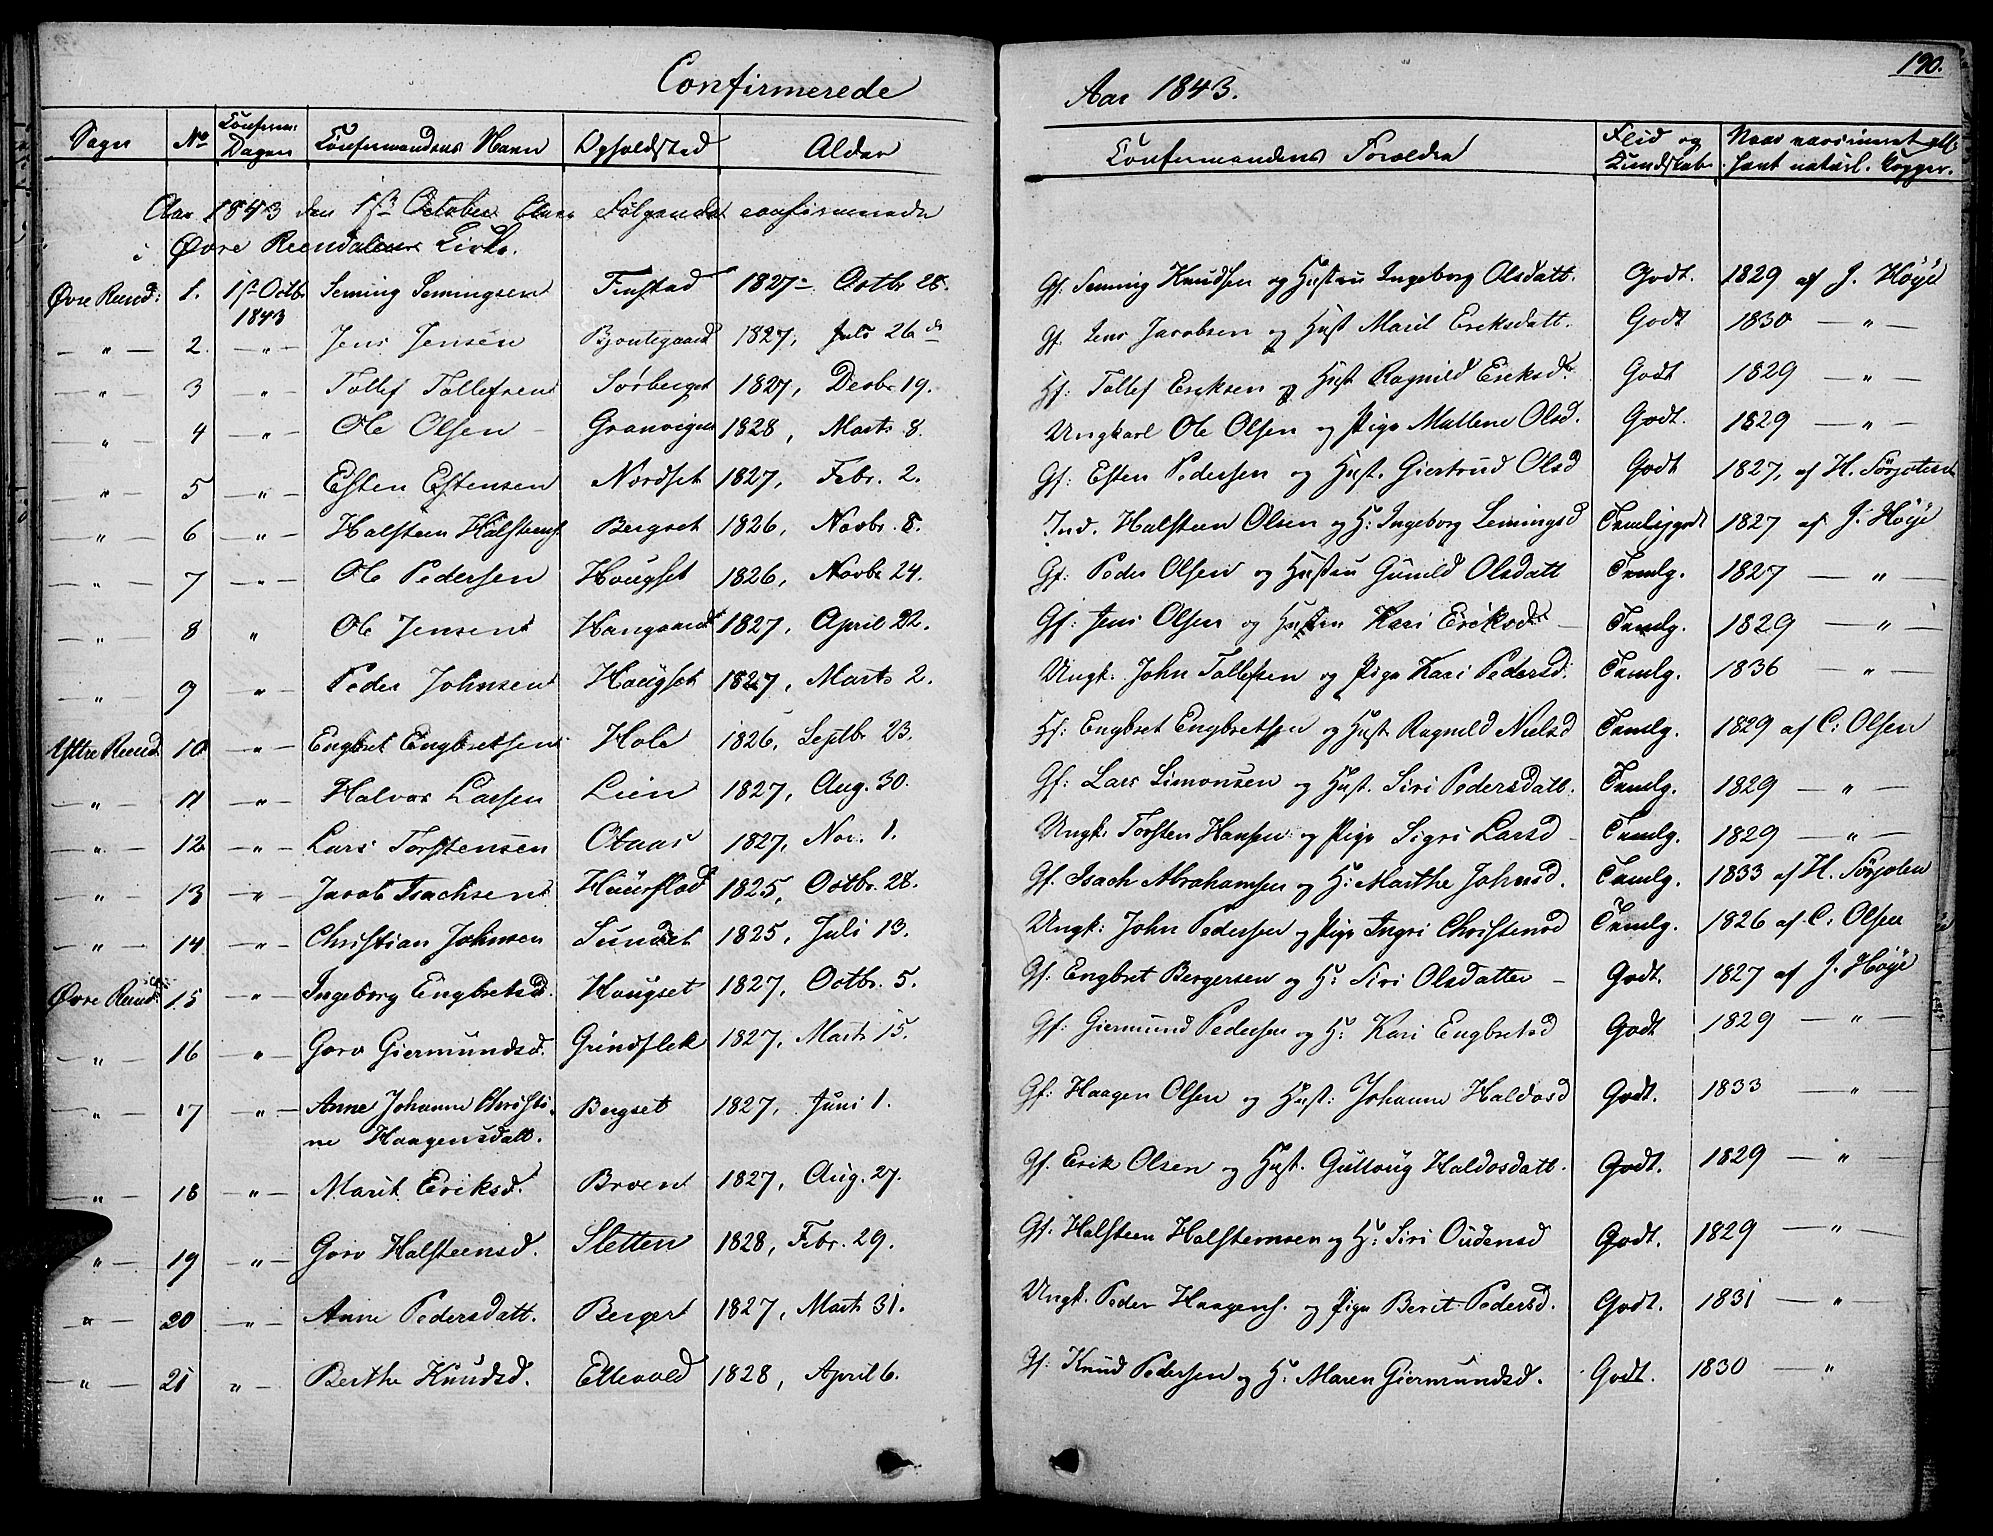 190.
Confirmerede Aar 1843.
Sogn | No | Conferm: Dagen | Confermandens Navn | Opholdsted | Alder | Confermandens Foreldre | Flid og Kundskab | Naar vaccineret samt naturl. Kopper.
Aar 1843 den 1ste October bleve Følgende confirmerede
i Øvre Reendalens Kirke.
Øvre Reend: | 1. | 1ste Octbr 1843 | Seming Semingsen | Finstad | 1827 Octbr 28. | Gf: Seming Knudsen og Hustru Ingeborg Olsdatt. | Godt. | 1829 af J. Høye
— " — | 2. | — " — | Jens Jensen | Bjontegaard | 1827, Juli 26de | Gf. Jens Jacobsen og Hust Marit Eriksdatt. | Godt | 1830 — " —
— " — | 3 | — " — | Tollef Tollefsen | Sørberget | 1827, Decbr 19. | Hf: Tollef Eriksen og Hust Ragnild Eriksdr | Godt | 1829 — " —
— " — | 4 | — " — | Ole Olsen | Granvigen | 1828, Marts 8. | Ungkarl Ole Olsen og Pige Mallene Olsd. | Godt. | 1829 — " —
— " — | 5 | — " — | Esten Estensen | Nordset | 1827, Febr. 2. | Gf: Esten Pedersen og Hust. Giertrud Olsd | Godt | 1827, af H. Sørjoten
— " — | 6 | — " — | Halsteen Halsteens. | Bergset | 1826, Novbr. 8. | Ind. Halsteen Olsen og H: Ingeborg Semingsd | Temligodt | 1827 af J. Høye
— " — | 7 | — " — | Ole Pedersen | Hougset | 1826, Novbr 24. | Gf: Peder Olsen og Hustru Gunild Olsdatt | Temlg. | 1827 — " —
— " | 8 | " | Ole Jensen | Hangaard | 1827, April 22. | Gf: Jens Olsen og Hustru Kari Eriksdr | Temlg. | 1829 — " —
" | 9 | " | Peder Johnsen | Haugset | 1827, Marts 2. | Ungk. John Tollefsen og Pige Kari Pedersd: | Temlg. | 1836 "
Ytre Reend. | 10 | — " — | Engbret Engbretsen | Hole | 1826, Septbr 23. | Hf: Engbret Engbretsen og Hust Ragnild Nielsd | Temlg. | 1829 af C: Olsen
— " — | 11 | — " — | Halvor Larsen | Lien | 1827, Aug. 30. | Gf: Lars Simonsen og Hust. Siri Pedersdatt. | Temlg. | 1829 — " —
— " — | 12 | — " — | Lars Torstensen | Otaas | 1827, Nov. 1. | Ungk: Torsten Hansen og Pige Sigri Larsd | Temlg. | 1829 — " —
— " — | 13 | — " — | Jacob Isachsen | Haarstad | 1825, Octbr. 28. | Gf. Isach Abrahamsen og H: Marthe Johnsd. | Temlg. | 1833 af H. Sørjoten
— " — | 14 | — " — | Christian Johnsen | Sundet | 1825, Juli 13. | Ungk: John Pedersen og Pige Ingri Christensd | Temlg. | 1826 af C. Olsen
Øvre Reend. | 15 | — " — | Ingeborg Engbretsd. | Hougset | 1827, Octbr. 5. | Gf. Engbret Bergersen og H: Siri Olsdatter | Godt. | 1827 af J. Høye
" — | 16 | " | Goro Giermundsd. | Grindflek | 1827, Marts 15. | Gf: Giermund Pedersen og H: Kari Engbretsd | Godt | 1829 — " —
" | 17 | — " — | Anne Johanne Christi-
ne Haagensdatt. | Bergset | 1827, Juni 1. | Gf: Haagen Olsen og Hust: Johanne Haldosd | Godt. | 1833 — "
— " — | 18 | — " — | Marit Eriksd. | Broen | 1827, Aug. 27. | Gf. Erik Olsen og Hust. Gulloug Haldosdatt. | Godt. | 1829 — " —
" — | 19 | — " — | Goro Halsteensd. | Sletten | 1828, Febr. 29. | Gf: Halsteen Halsteensen og H: Siri Oudensd | Godt. | 1829 — " —
— " — | 20 | — " — | Anne Pedersdatt. | Berget | 1827, Marts 31. | Ungk. Peder Haagens. og Pige Berit Pedersd. | Godt. | 1831 — " —
— " — | 21 | " — | Berthe Knudsd. | Ellevold | 1828, April 6. | Gf: Knud Pedersen og H: Maren Giermundsd. | Godt. | 1830 — "